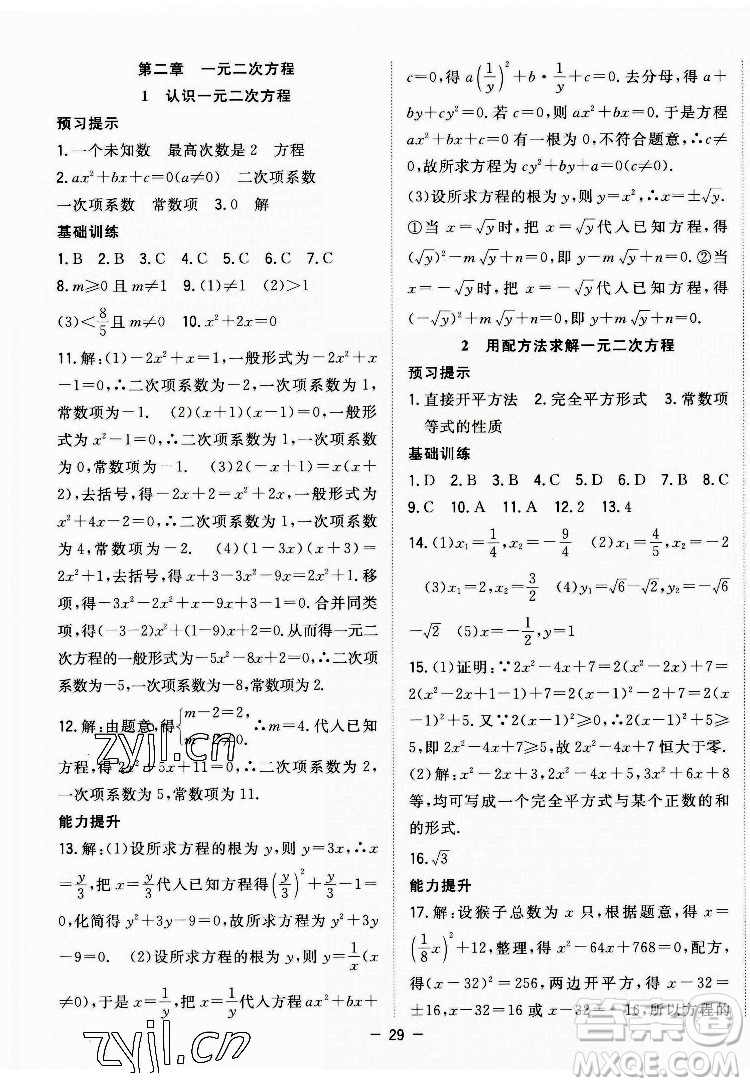 第二章　一元二次方程
1　认识一元二次方程
预习提示
1.一个未知数　最高次数是2　方程
2.ax²+bx+c=0(a≠0)　二次项系数
一次项系数　常数项　3.0　解
基础训练
1.B　2.B　3.C　4.C　5.B　6.D　7.C
8.m≥0且m≠1　9.(1)=1　(2)>1
(3)<8/5且m≠0　10.x²+2x=0
11.解:(1)-2x²+x=1,一般形式为-2x²+
x-1=0,∴二次项系数为-2,一次项系数为1,
常数项为-1.　(2)(x+1)(x-1)=0,一般形
式为x²-1=0,∴二次项系数为1,一次项系数
为0,常数项为-1.　(3)2(x²-1)=x²-4x
+2,去括号,得2x²-2=x²-4x,一般形式为
x²+4x-2=0,∴二次项系数为1,一次项系数
为4,常数项为-2.　(4)(1-3x)(x+3)=
2x²+1,去括号,得x+3-3x²-9x=2x²+1.移
项,得-3x²-2x²+x-9x+3-1=0.合并同类
项,得(-3-2)x²-8x+2=0,从而得一元二
次方程的一般形式为-5x²-8x+2=0,二次项
系数为-5,一次项系数为-8,常数项为2.
12.解:由题意,得{m-2=2,
∴m=4.代入已知
方程,得2x²+5x+11=0.∴二次项系数为2,
一次项系数为5,常数项为11.
能力提升
13.解:(1)设所求方程的根为y,则y=3x,∴x
=y/3,把x=y/3代入已知方程得(y/3)²+y/3-1=
0,化简得y²+3y-9=0,故所求方程为y²+3y
-9=0.　(2)设所求方程的根为y,则y=1/x(x
≠0),于是x=1/y(y≠0).把x=1/y代入ax²+bx+
c=0,得a(1/y)²+b·1/y+c=0.去分母,得a+
by+cy²=0.若c=0,有ax²+bx=0,于是方程
ax²+bx+c=0有一个根为0,不符合题意,∴c
≠0,故所求方程为cy²+by+a=0(c≠0).
(3)设所求方程的根为y,则y=x²,∴x=±√y.
①当x=√y时,把x=√y代入已知方程,得
(√y)²-m√y+n=0,即y-m√y+n=0.②当x
=-√y时,把x=-√y代入已知方程,得
(-√y)²-m(-√y)+n=0,即y+m√y+n=0.
2　用配方法求解一元二次方程
预习提示
1.直接开平方法　2.完全平方形式　3.常数项
等式的性质
基础训练
1.D　2.B　3.C　4.D　5.D　6.B　7.B　8.D
9.C　10.A　11.A　12.2　13.4
14.(1)x₁=1/4,x₂=-9/4　(2)x₁=4/5,x₂=-2
(3)x₁=2,x₂=3/2　(4)y₁=√6-√2,y₂=-√6
-√2　(5)x=-1/2,y=1
15.(1)证明:∵2x²-4x+7=2(x²-2x)+7=
2(x²-2x+1-1)+7=2(x-1)²-2+7=
2(x-1)²+5.又∵2(x-1)²≥0,∴2(x-1)²
+5≥5>0,∴2x²-4x+7恒大于零.
(2)解:x²-2x+3,2x²-2x+5,3x²+6x+8
等,均可写成一个完全平方式与某个正数的和
的形式.
16.√3
能力提升
17.解:设猴子总数为x只,根据题意,得x=
(1/8x)²+12,整理,得x²-64x+768=0,配方,
得(x-32)²=256,两边开平方,得x-32=
±16,x-32=16或x-32=-16,所以方程的
- 29 -
zyjl.cn
zyjl.cn
答案圈
MXQE.COM